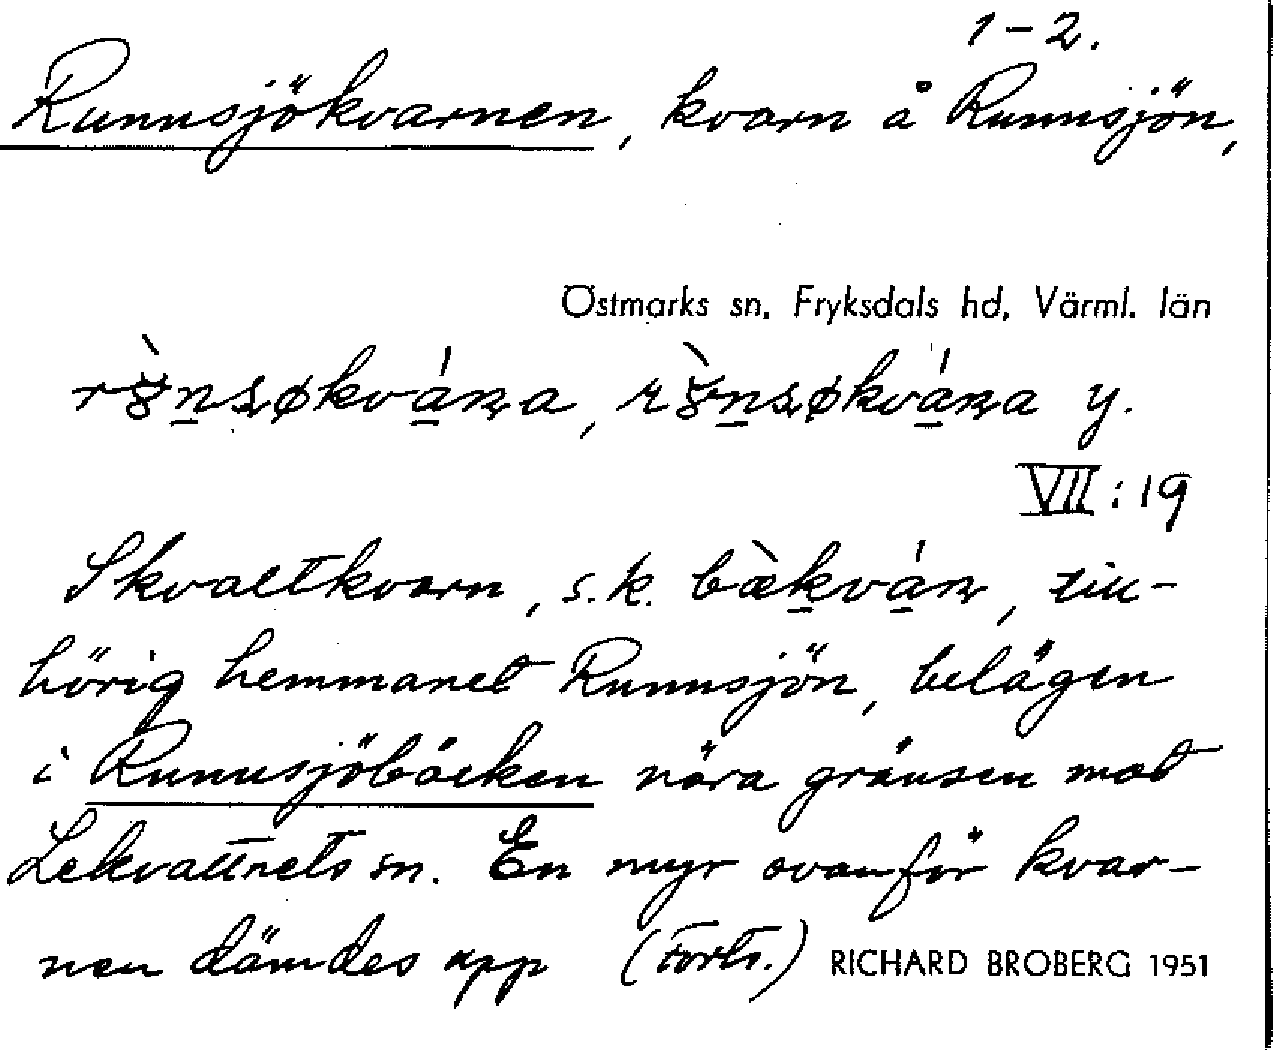 1-2.
Runnsjökvarnen, kvarn å Runnsjön,
Östmarks sn, Fryksdals hd, Värml. län
y.
VII:19
Skvaltkvarn, s.k. bækván, till-
hörig hemmanet Runnsjön, belägen
i Runnsjöbäcken nära gränsen mot
Lekvattnets sn. En myr ovanför kvar-
nen dämdes upp (Forts.) RICHARD BROBERG 1951